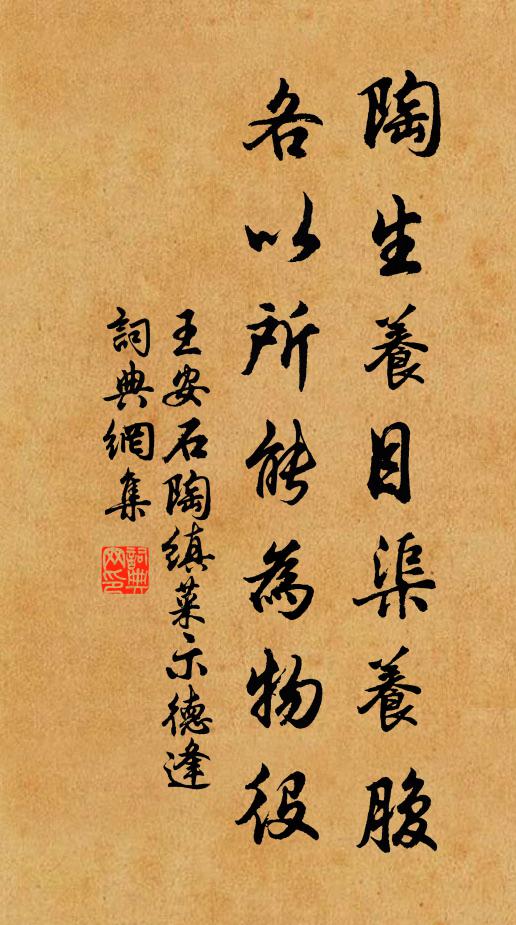 陶生養目渠養腹
各以所能為物役
王安石陶縝菜示德逢
詞典網集
詞典網印